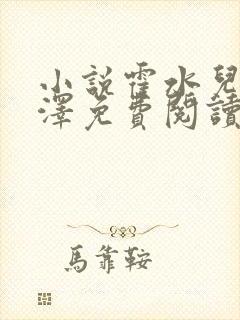 小說霍水兒
澤免費閱讀
馬靠鞍